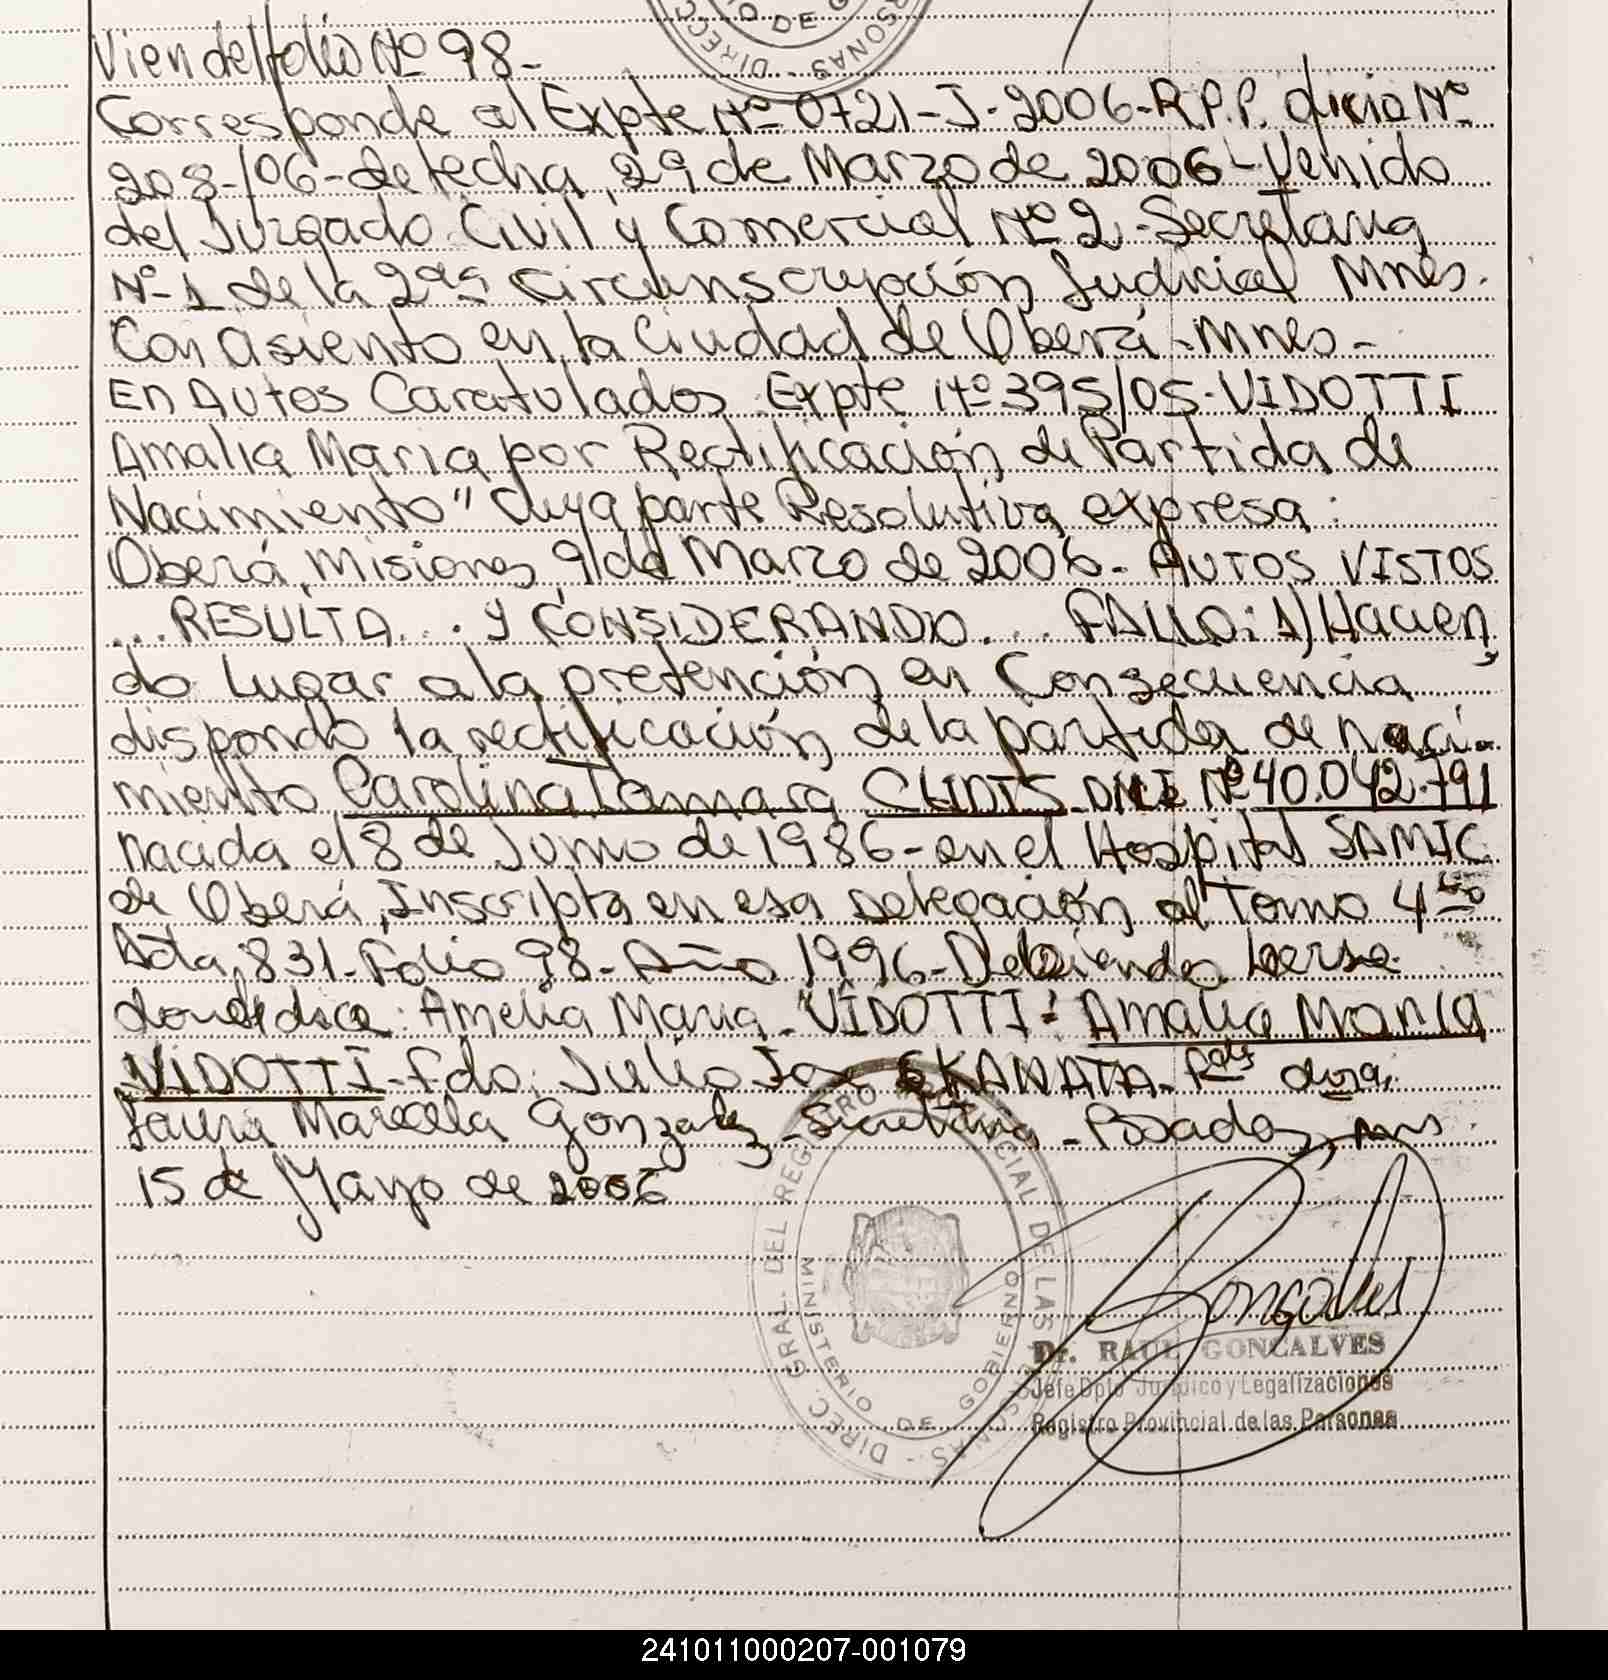 DIRECC
O DE G
RSONAS
Vien del folio Nº 98-
Corresponde al Expte Nº 0721-J-2006-R.P.P. Oficio Nº
208-/06-de fecha, 29 de Marzo de 2006-Venido
del Juzgado Civil y Comercial Nº 2-Secretaria
Nº 1 de la 2da Circunscripción Judicial Mnes.
Con asiento en la Ciudad de Oberá-Mnes-
En Autos Caratulados Expte Nº 395/05-VIDOTTI
Amalia Maria por Rectificación de Partida de
Nacimiento" Cuya parte Resolutiva expresa:
Oberá, Misiones, 9 de Marzo de 2006- AUTOS VISTOS
...RESULTA... y CONSIDERANDO... FALLO: 1) Hacien
do Lugar a la pretención en Consecuencia,
dispondo la rectificación de la partida de naci-
miento Carolina Tamara DNI Nº 40.042.791
nacida el 8 de Junio de 1986-en el Hospital SAMIC
de Oberá, Inscripta en esa Delegación al Tomo 4to
Acta 831-Folio 98-Año 1996-Debiendo leerse
donde dice: Amelia Maria-VIDOTTI- Amalia Maria
VIDOTTI-Fdo. Julio
Laura Marcela Gonzalez-Secretaria-Posadas, mns.
15 de Mayo de 2006
DIREC. GRAL. DEL REGISTRO PROVINCIAL DE LAS PERSONAS -
MINISTERIO DE GOBIERNO
Goncalves
Dr. RAUL GONCALVES
Jefe Dpto Jurídico y Legalizaciones
Registro Provincial de las Personas
241011000207-001079